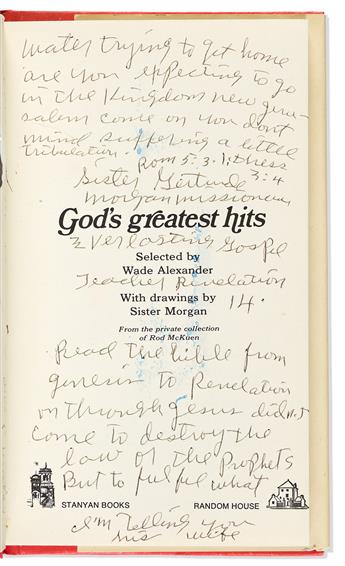 water trying to get home
are you expecting to go
in the Kingdom new geru-
salem come on you dont
mind suffering a little
tribulation. Rom 5:3. 1, thess
3:4
Sister Gertrude
morgan missionary
God's greatest hits
Everlasting Gospel
Selected by
Wade Alexander
Teacher, Revelation
14.
With drawings by
Sister Morgan
From the private collection
of Rod McKuen
Read the bible from
genesis to Revelation
on through Jesus did not
come to destroy the
law of the Prophets
But to fulful what
STANYAN BOOKS RANDOM HOUSE
I'm telling you
his wife